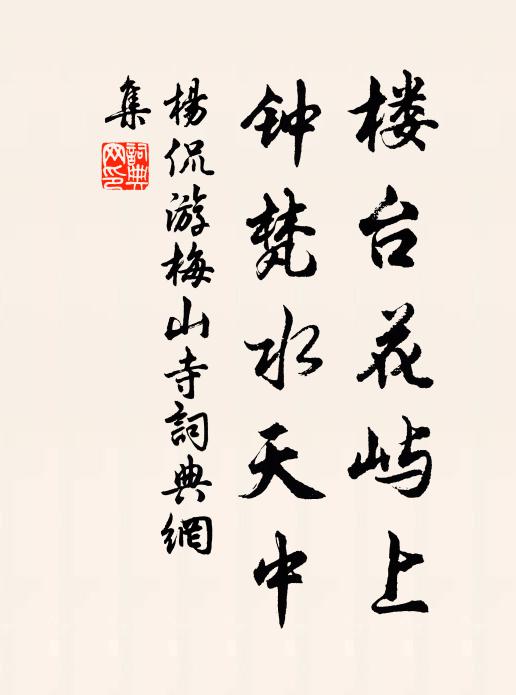 楼台花屿上
钟梵水天中
杨侃游梅山寺詞典網
集
詞典網印